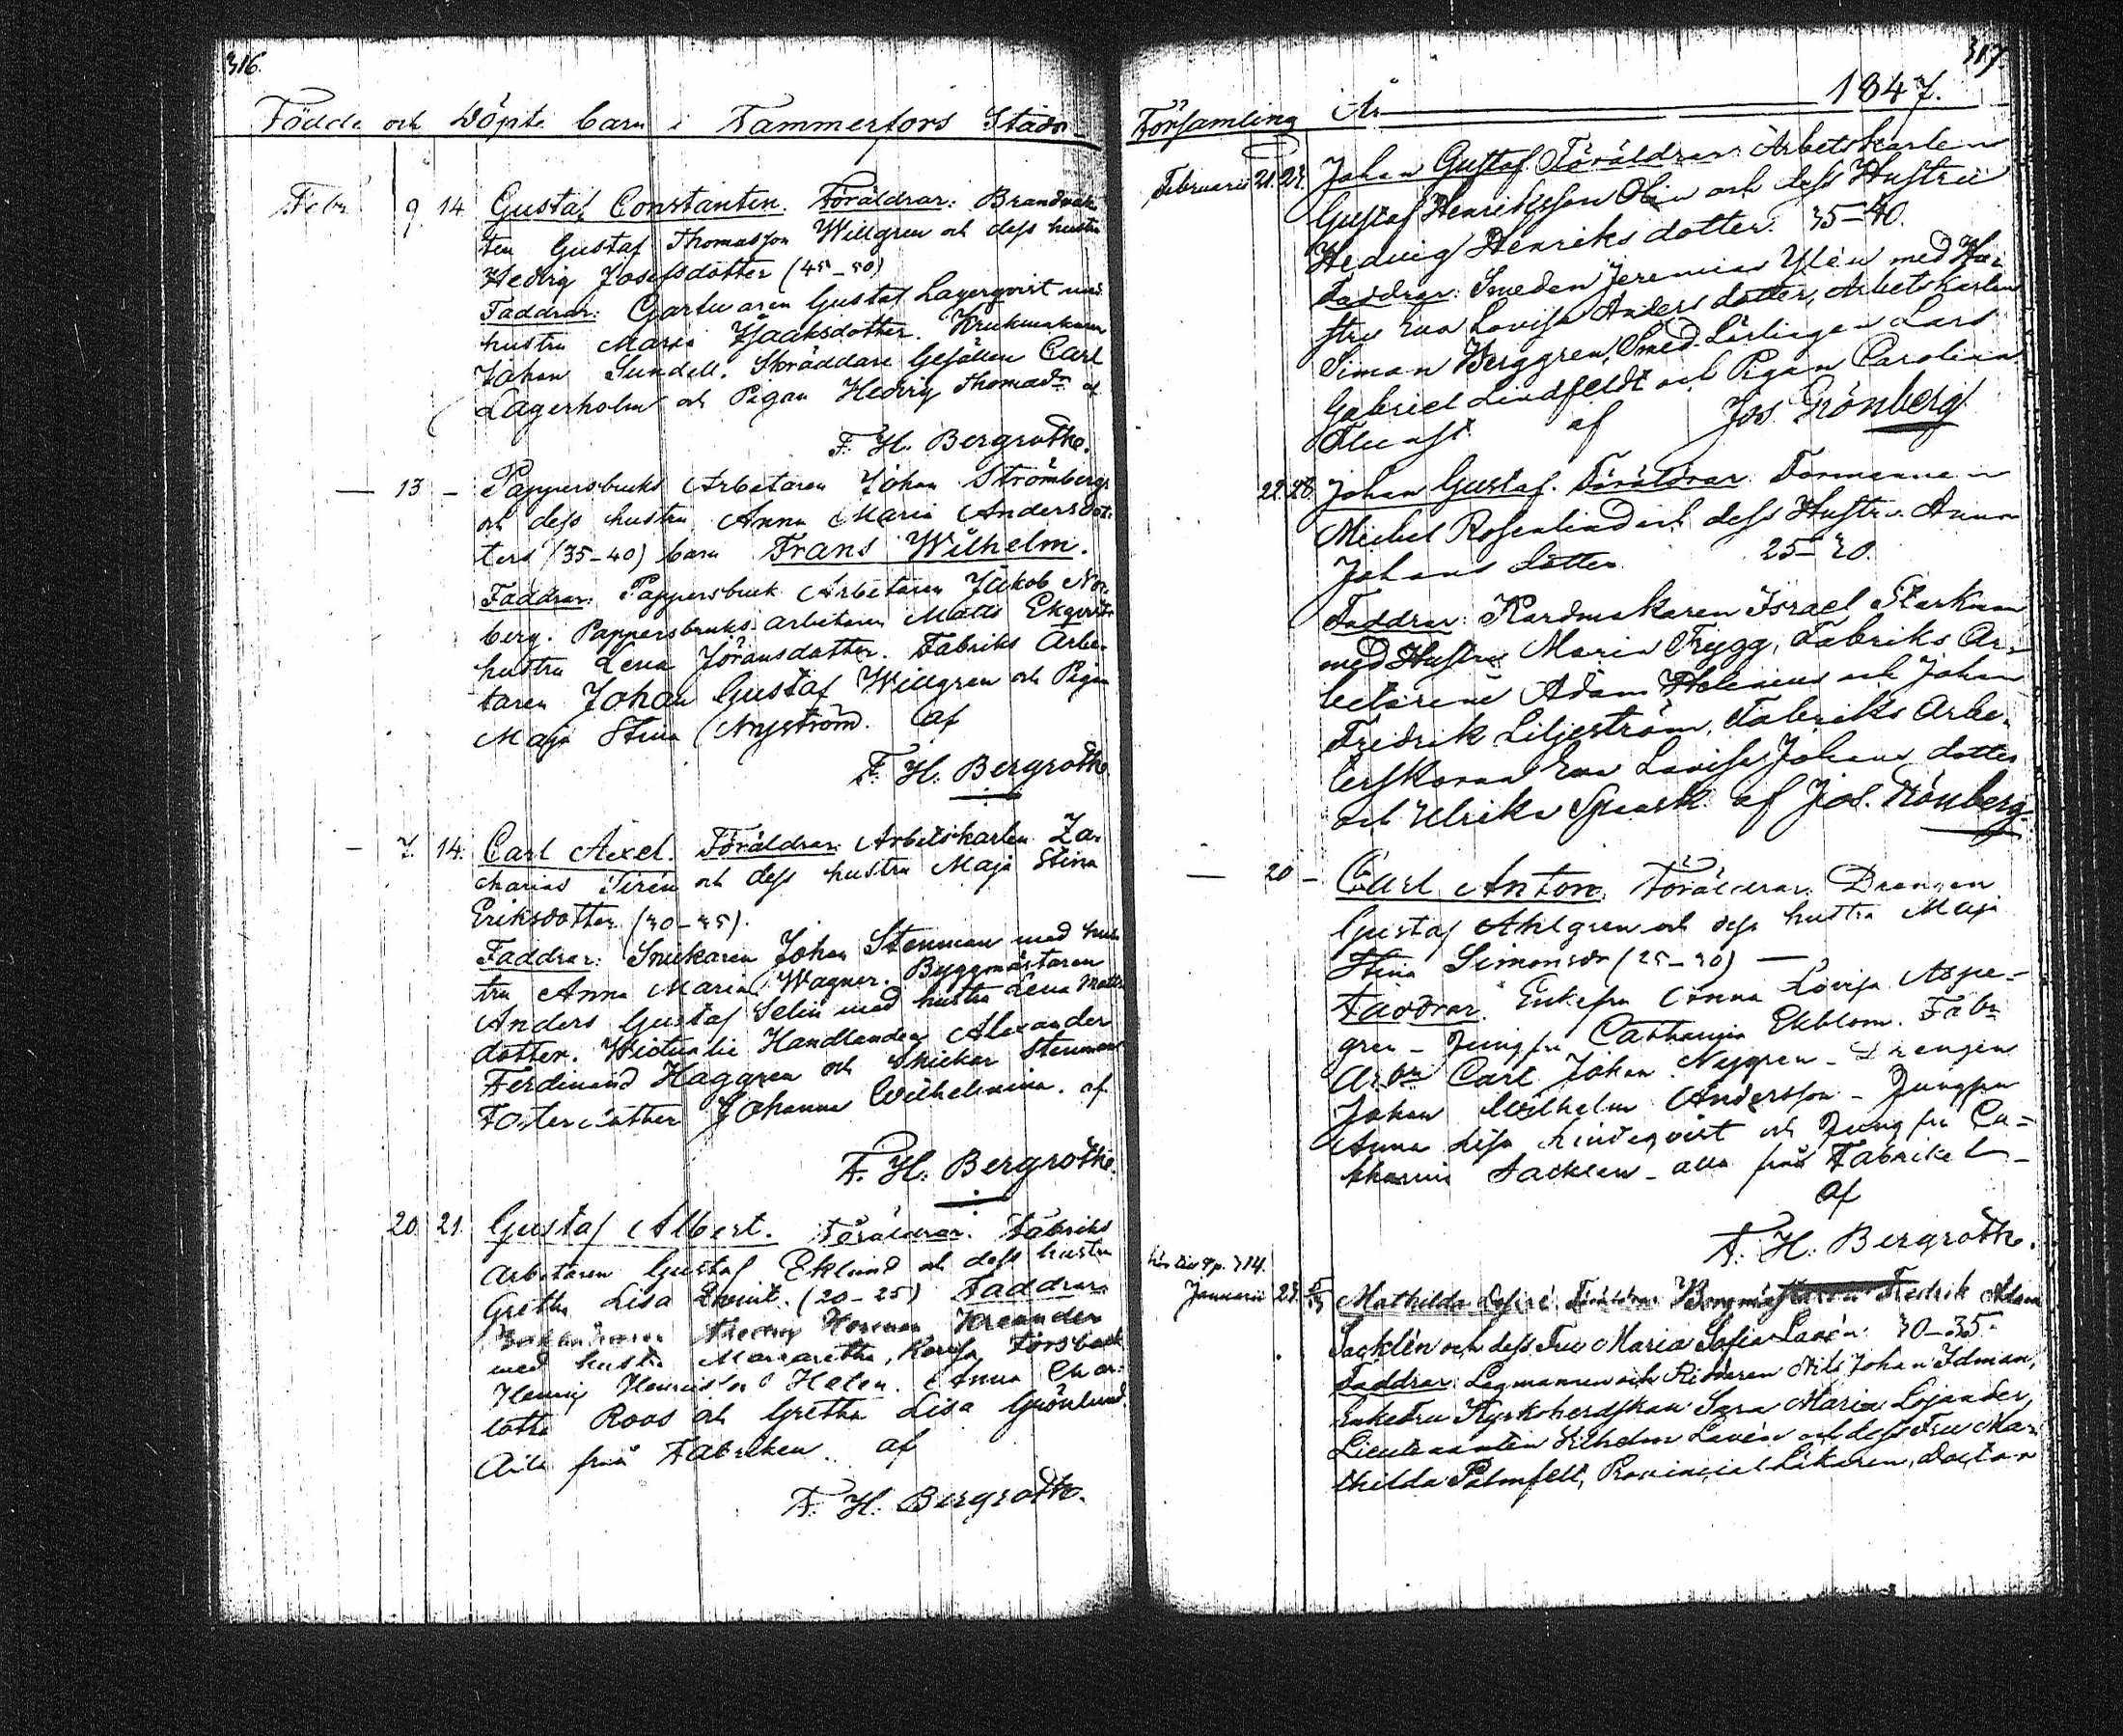 316.
Födde och Döpte barn i Tammerfors Stads
Febr 9 14 Gustaf Constantin. Föräldrar: Brandvak-
ten Gustaf Thomasson Willgren och dess hustru
Hedvig Josefsdotter (45–50)
Faddrar: Garfvaren Gustaf Lagerqvist med
hustru Maria Isaaksdotter. Krukmakaren
Johan Sundell. Skräddare Gesällen Carl
Lagerholm och Pigan Hedvig Thomasdr af
F. H. Bergroth.
— 13 – Pappersbruks Arbetaren Johan Strömbergs
och dess hustru Anna Maria Andersdot-
ters (35–40) barn Frans Wilhelm.
Faddrar: Pappersbruk Arbetaren Jakob Nor-
berg. Pappersbruks arbetaren Matts Ekqvists
hustru Lena Jöransdotter. Fabriks Arbe-
taren Johan Gustaf Willgren och Pigan
Maja Stina Nyström. af
F. H. Bergroth.
— 7. 14. Carl Axel. Föräldrar: Arbetskarlen Za-
charias Sirén och dess hustru Maja Stina
Eriksdotter (30–35).
Faddrar: Snickaren Johan Stenman med hus-
tru Anna Maria Wagner. Byggmästaren
Anders Gustaf Selin med hustru Lena Matts
dotter. Victualie Handlanden Alexander
Ferdinand Haggren och Snickar Stenmans
Fosterdotter Johanna Wilhelmina. af
F. H. Bergroth.
20. 21. Gustaf Albert. Föräldrar: Fabriks
Arbetaren Gustaf Eklund och dess hustru
Gretha Lisa Qvint. (20–25) Faddrar:
med hustru Margaretha, Forsback
Henric Henricsson Helen. Anna Char-
lotta Roos och Gretha Lisa Grönlund.
Alla från Fabriken. af
F. H. Bergroth.
317.
Församling År 1847.
Februarii 21. 27. Johan Gustaf. Föräldrar: Arbetskarlen
Gustaf Henriksson Olin och dess Hustru
Hedvig Henriks dotter. 35–40.
Faddrar: Smeden Jeremias Ylén med Hu-
stru Eva Lovisa Anders dotter, Arbetskarlen
Simon Berggren, Smed-Lärlingen Lars
Gabriel Lindfeldt och Pigan Carolina
af Jos. Grönberg
22. 28. Johan Gustaf. Föräldrar: Formannen
Michel Rosenlind och dess Hustru Anna
Johans dotter. 25–30.
Faddrar: Kardmakaren Israel Starkman
med Hustru Maria Trygg, Fabriks Ar-
betarene Adam Helenius och Johan
Fredrik Liljeström, Fabriks Arbe-
terskorna Eva Lovisa Johans dotter
och Ulrika Spensk. af Jos. Grönberg.
— 20 – Carl Anton. Föräldrar: Drengen
Gustaf Ahlgren och dess hustru Maja
Stina Simonsdr (25–30) —
Faddrar: Enkefru Anna Lovisa Aspe-
gren – Jungfru Catharina Ekblom. Fabr
Arbn Carl Johan Nygren – Drengen
Johan Wilhelm Andersson – Jungfru
Anna Lisa Lindeqvist och Jungfru Ca-
tharina Sacklen – alla från Fabriken –
af
F. H. Bergroth.
p. 314.
Januarii 27. Mathilda Desiré. Föräldrar: Borgmästaren Fredrik Adam
Sacklén och dess Fru Maria Sofia Lavén. 30–35.
Faddrar: Lagmannen och Riddaren Nils Johan Idman,
Enkefru Kyrkoherdskan Sara Maria Lojander,
Lieutenanten Vilhelm Lavén och dess Fru Ma-
thilda Palmfelt, Provincial Läkaren, Doctor